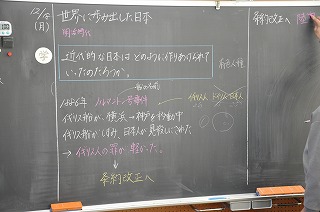 12/5
(月)
世界に歩み出した日本
明治時代
近代的な日本はどのように作りあげられて
いったのだろうか。
1886年 ノルマントン号事件
イギリス船が、横浜→神戸を移動中
イギリス船がしずみ、日本人が見殺しにされた
→イギリス人の罪が軽かった。
条約改正へ
イギリス人
ドイツ人
日本人
条約改正へ 陸